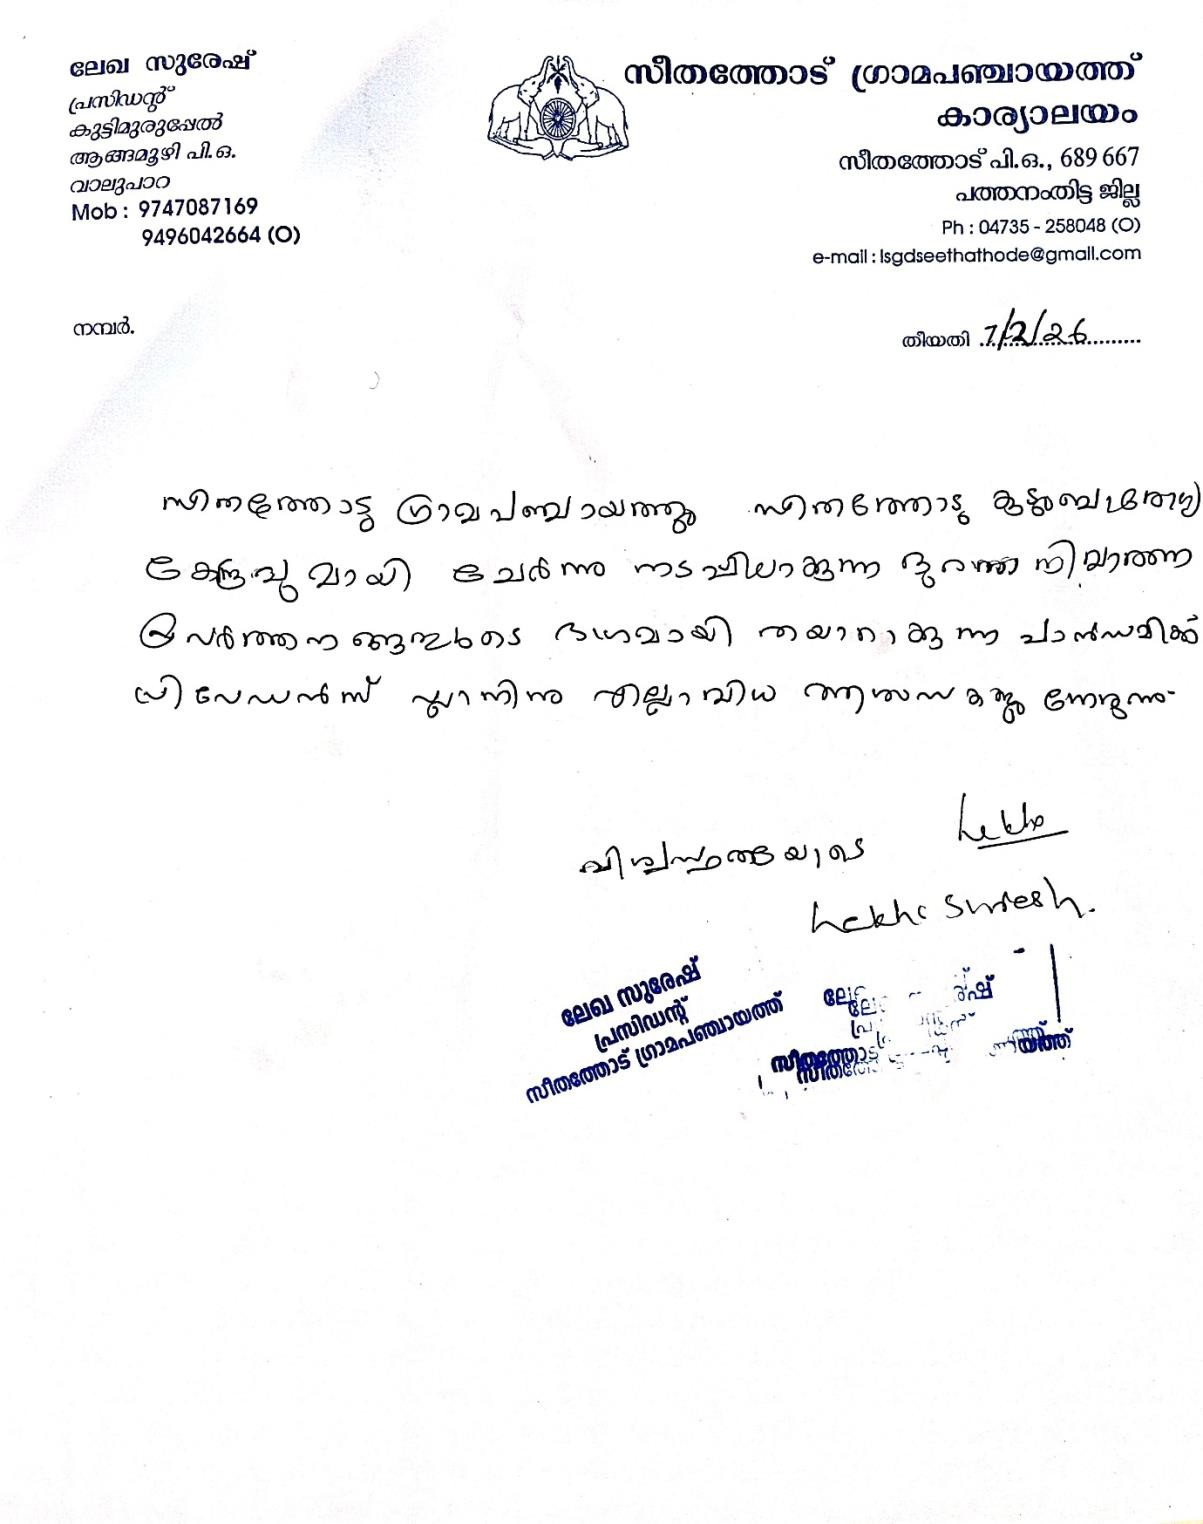 ലേഖ സുരേഷ്
പ്രസിഡന്റ്
കുട്ടിമുരുപ്പേൽ
ആങ്ങമൂഴി പി.ഒ.
വാലുപാറ
Mob : 9747087169
9496042664 (O)
സീതത്തോട് ഗ്രാമപഞ്ചായത്ത്
കാര്യാലയം
സീതത്തോട് പി.ഒ., 689 667
പത്തനംതിട്ട ജില്ല
Ph : 04735 - 258048 (O)
e-mail : lsgdseethathode@gmail.com
നമ്പർ.
തീയതി 7/2/26
സീതത്തോട്ടു ഗ്രാമപഞ്ചായത്തും സീതത്തോടു കുടുംബാരോഗ്യ
കേന്ദ്രവു മായി ചേർന്നു നടപ്പിലാക്കുന്ന ദുരന്ത നിവാരണ
പ്രവർത്തനങ്ങളുടെ ഭാഗമായി തയാറാക്കുന്ന പാൻഡമിക്ക്
പ്രിപേഡൻസ് പ്ലാനിനു എല്ലാവിധ ആശംസകളും നേരുന്നു
വിശ്വസ്തതയോടെ Lekha
Lekha Suresh.
ലേഖ സുരേഷ്
പ്രസിഡന്റ്
സീതത്തോട് ഗ്രാമപഞ്ചായത്ത്